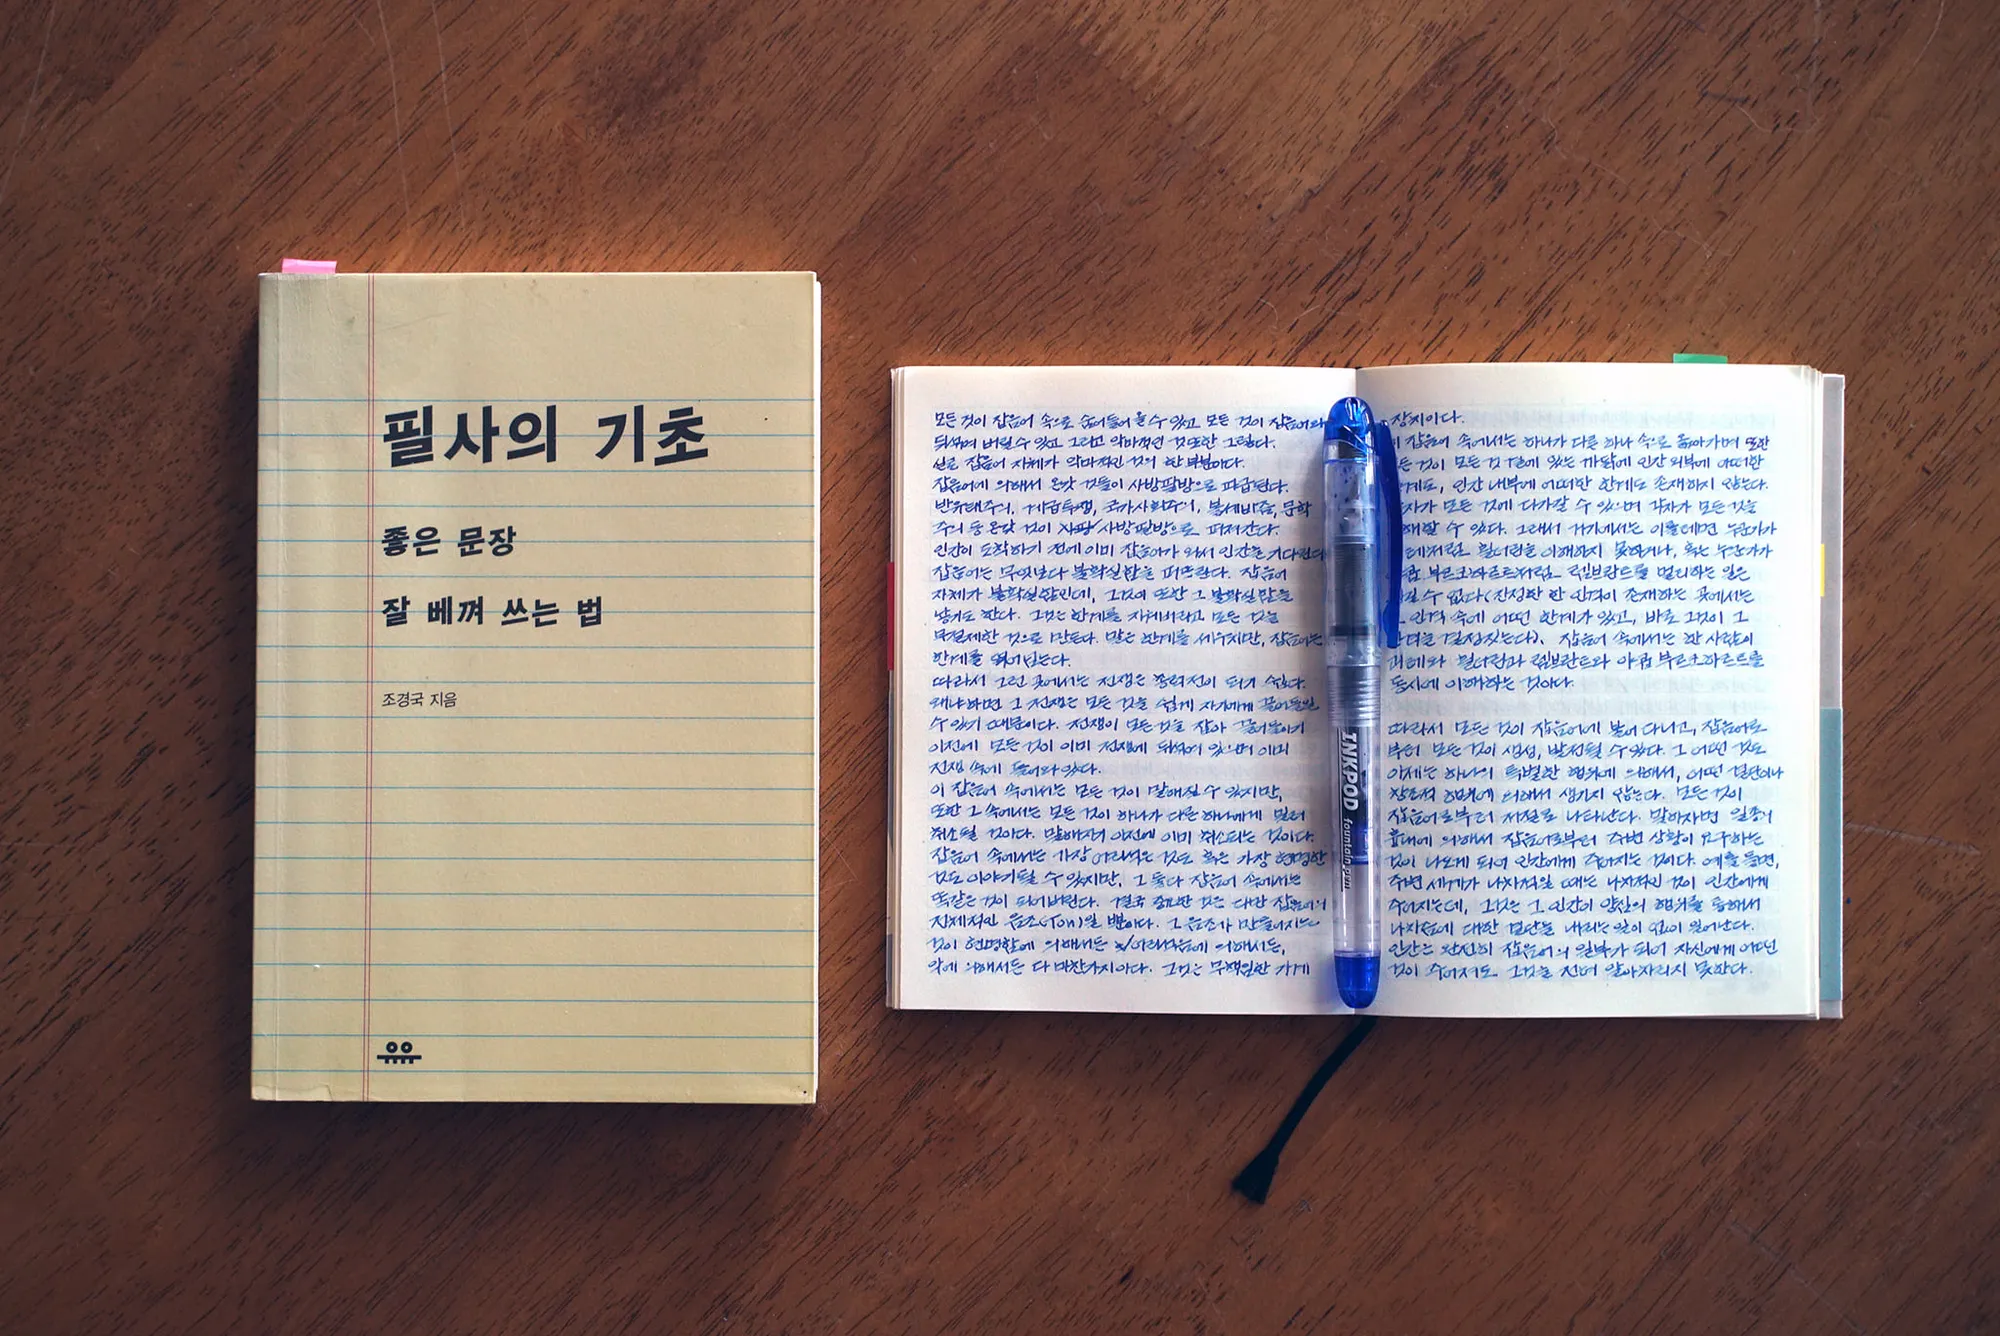 필사의 기초
좋은 문장
잘 베껴 쓰는 법
조경국 지음
유유
모든 것이 잡음어 속으로 숨어들어 올 수 있고 모든 것이 잡음어와
뒤섞여 버릴 수 있고 그리고 악마적인 것 또한 그렇다.
실로 잡음어 자체가 악마적인 것의 한 부분이다.
잡음어에 의해서 온갖 것들이 사방팔방으로 파급된다.
반유태주의, 계급투쟁, 국가사회주의, 볼셰비즘, 문학
주의 등 온갖 것이 사방팔방으로 퍼져간다.
인간이 도착하기 전에 이미 잡음어가 와서 인간을 기다린다
잡음어는 무엇보다 불확실함을 퍼뜨린다. 잡음어
자체가 불확실함인데, 그것이 또한 그 불확실함을
낳기도 한다. 그것은 한계를 지워버리고 모든 것을
무절제한 것으로 만든다. 말은 한계를 세우지만, 잡음어는
한계를 뛰어넘는다.
따라서 그런 곳에서는 전쟁은 총력전이 되기 쉽다.
왜냐하면 그 전쟁은 모든 것을 쉽게 자기에게 끌어들일
수 있기 때문이다. 전쟁이 모든 것을 잡아 끌어들이기
이전에 모든 것이 이미 전쟁에 뒤섞여 있으며 이미
전쟁 속에 들어와 있다.
이 잡음어 속에서는 모든 것이 말해질 수 있지만,
또한 그 속에서는 모든 것이 하나가 다른 하나에게 밀려
취소될 것이다. 말해지기 이전에 이미 취소되는 것이다.
잡음어 속에서는 가장 어리석은 것도 혹은 가장 현명한
것도 이야기될 수 있지만, 그 둘 다 잡음어 속에서는
똑같은 것이 되어버린다. 결국 중요한 것은 다만 잡음어의
전체적인 음조(Ton)일 뿐이다. 그 음조가 만들어지는
것이 현명함에 의해서든 어리석음에 의해서든,
악에 의해서든 다 마찬가지이다. 그것은 무책임한 기계
장치이다.
잡음어 속에서는 하나가 다른 하나 속으로 옮아가며 또한
것이 모든 것 곁에 있는 까닭에 인간 외부에 어떠한
인간 내부에 어떠한 한계도 존재하지 않는다.
모든 것에 다가갈 수 있으며 각자가 모든 것을
수 있다. 그래서 거기에서는 이를테면 누군가가
횔더린을 이해하지 못하거나, 혹은 누군가가
렘브란트를 멀리하는 일은
수 없다(진정한 한 인격이 존재하는 곳에서는
인격 속에 어떤 한계가 있고, 바로 그것이 그
결정짓는다). 잡음어 속에서는 한 사람이
횔더린과 렘브란트와 아큅 부르크하르트를
동시에 이해하는 것이다.
따라서 모든 것이 잡음어에 붙어 다니고, 잡음어로
부터 모든 것이 생성, 발전될 수 있다. 그 어떤 것도
이제는 하나의 특별한 행위에 의해서, 어떤 결단이나
창조적 행위에 의해서 생기지 않는다. 모든 것이
잡음어로부터 저절로 나타난다. 말하자면 일종의
흉내에 의해서 잡음어로부터 주변 상황이 요구하는
것이 나오게 되어 인간에게 주어지는 것이다. 예를 들면,
주변 세계가 나치적일 때는 나치적인 것이 인간에게
주어지는데, 그것은 그 인간의 양심의 행위를 통해서
나치즘에 대한 결단을 내리는 일이 없이 일어난다.
인간은 완전히 잡음어의 일부가 되어 자신에게 어떤
것이 주어져도 그것을 전혀 알아차리지 못한다.
INKPOD fountain pen